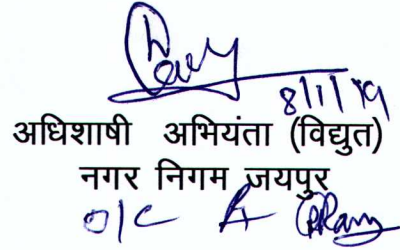 8/1/19
अधिशाषी अभियंता (विद्युत)
नगर निगम जयपुर
O/C